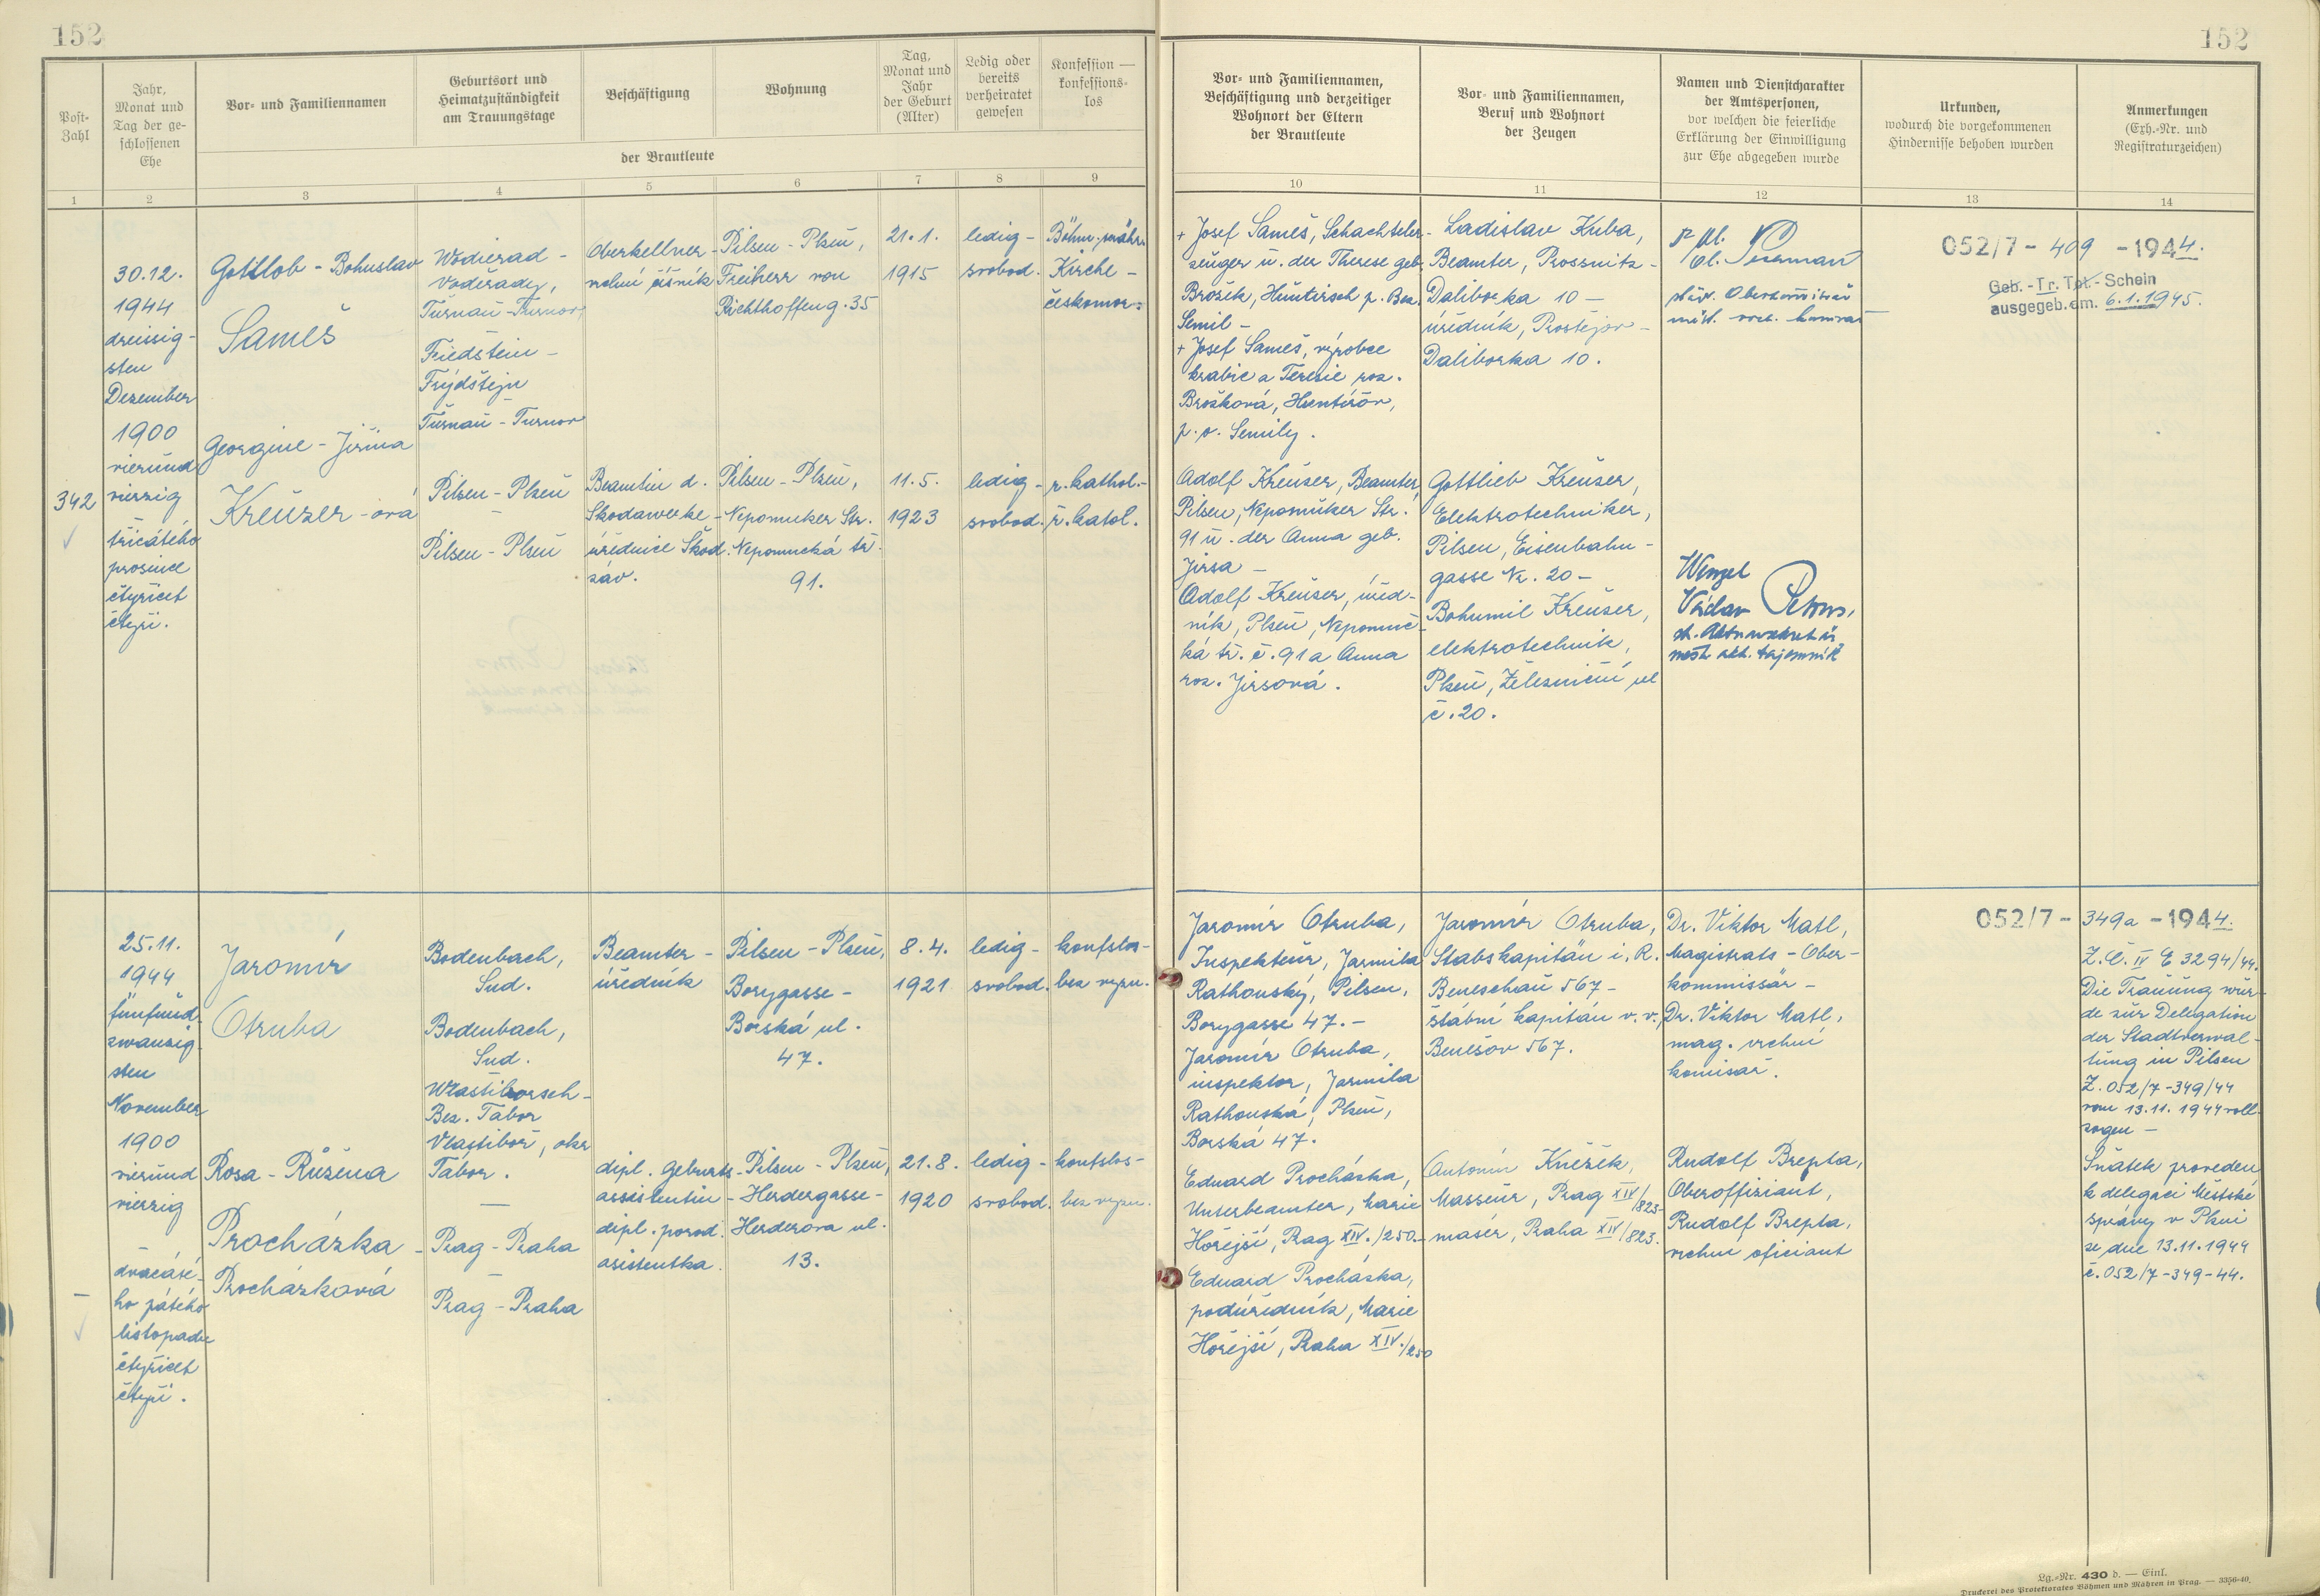 152
152
Post-
Zahl
Jahr,
Monat und
Tag der ge-
schlossenen
Ehe
Vor- und Familiennamen
Geburtsort und
Heimatzuständigkeit
am Trauungstage
Beschäftigung
Wohnung
Tag,
Monat und
Jahr
der Geburt
(Alter)
Ledig oder
bereits
verheiratet
gewesen
Konfession —
konfessions-
los
der Brautleute
Vor- und Familiennamen,
Beschäftigung und derzeitiger
Wohnort der Eltern
der Brautleute
Vor- und Familiennamen,
Beruf und Wohnort
der Zeugen
Namen und Dienstcharakter
der Amtspersonen,
vor welchen die feierliche
Erklärung der Einwilligung
zur Ehe abgegeben wurde
Urkunden,
wodurch die vorgekommenen
Hindernisse behoben wurden
Anmerkungen
(Exh.-Nr. und
Registraturzeichen)
1 2 3 4 5 6 7 8 9 10 11 12 13 14
342
30.12.
1944
dreissig-
sten
Dezember
1900
vierund
vierzig
–
třicátého
prosince
čtyřicet
čtyři.
Gottlob - Bohuslav
Sameš
Georgine - Jiřina
Kreuzer - ová
Wodierad -
Voděrady,
Turnau - Turnov,
Friedstein -
Frýdštejn
Turnau - Turnov
Pilsen - Plzeň
–
Pilsen - Plzeň
Oberkellner -
vrchní číšník
Beamtin d.
Skodawerke -
úřednice Škod.
záv.
Pilsen - Plzeň,
Freiherr von
Richthoffeng. 35
Pilsen - Plzeň,
Nepomuker Str.
Nepomucká tř.
91.
21.1.
1915
11.5.
1923
ledig -
svobod.
ledig -
svobod.
Böhm.-mähr.
Kirche -
českomor.
r. kathol. -
ř. katol.
+ Josef Sameš, Schachteler-
zeuger u. der Therese geb.
Brožek, Huntirsch p. Bez.
Semil -
+ Josef Sameš, výrobce
krabic a Terezie roz.
Brožková, Huntířov,
p. o. Semily.
Adolf Kreuzer, Beamter,
Pilsen, Nepomuker Str.
91 u. der Anna geb.
Jirsa -
Adolf Kreuzer, úřed-
ník, Plzeň, Nepomuc-
ká tř. č. 91 a Anna
roz. Jirsová.
Ladislav Kuba,
Beamter, Prossnitz -
Daliborka 10 -
úředník, Prostějov -
Daliborka 10.
Gottlieb Kreuzer,
Elektrotechniker,
Pilsen, Eisenbahn-
gasse Nr. 20 -
Bohumil Kreuzer,
elektrotechnik,
Plzeň, Železniční ul
č. 20.
Wenzel
Václav
052/7 - 409 - 1944.
Geb. - Tr. Tot. - Schein
ausgegeb. am. 6.1.1945.
25.11.
1944
fünfund-
zwanzig-
sten
November
1900
vierund
vierzig
–
dvacáté-
ho pátého
listopadu
čtyřicet
čtyři.
Jaromír
Otruba
Rosa - Růžena
Procházka -
Procházková
Bodenbach,
Sud.
Bodenbach,
Sud.
Wlastiborsch -
Bez. Tabor
Vlastiboř, okr
Tábor.
—
Prag - Praha
–
Prag - Praha
Beamter -
úředník
dipl. Geburts-
assistentin -
dipl. porod.
asistentka.
Pilsen - Plzeň,
Borygasse -
Borská ul.
47.
Pilsen - Plzeň,
Herdergasse -
Herderova ul.
13.
8.4.
1921
21.8.
1920
ledig -
svobod.
ledig -
svobod.
konfslos -
bez vyzn.
konfslos -
bez vyzn.
Jaromír Otruba,
Inspekteur, Jarmila
Rathouský, Pilsen,
Borygasse 47. -
Jaromír Otruba,
inspektor, Jarmila
Rathouská, Plzeň,
Borská 47.
Eduard Procházka,
Unterbeamter, Marie
Hořejší, Prag XIV./250. -
Eduard Procházka,
podúředník, Marie
Hořejší, Praha XIV./250
Jaromír Otruba,
Stabskapitän i. R.
Beneschau 567 -
štábní kapitán v. v.,
Benešov 567.
Antonín Kněžek,
Masseur, Prag XIV/823 -
masér, Praha XIV/823.
Dr. Viktor Matl,
Magistrats - Ober-
kommissär -
Dr. Viktor Matl,
mag. vrchní
komisař.
Rudolf Brepta,
Oberoffiziant,
Rudolf Brepta,
vrchní oficiant
052/7 - 349a - 1944.
Z.Č. IV E 3294/44.
Die Trauung wur-
de zur Delegation
der Stadtverwal-
tung in Pilsen
Z. 052/7-349/44
vom 13.11.1944 voll-
zogen -
Sňatek proveden
k delegaci Městské
správy v Plzni
ze dne 13.11.1944
č. 052/7-349-44.
Lg.-Nr. 430 d. — Einl.
Druckerei des Protektorates Böhmen und Mähren in Prag. — 3356-40.